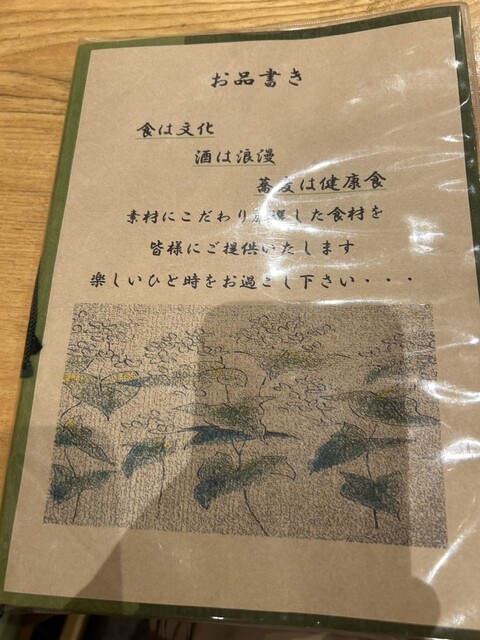 お品書き
食は文化
酒は浪漫
蕎麦は健康食
素材にこだわり厳選した食材を
皆様にご提供いたします
楽しいひと時をお過ごし下さい・・・